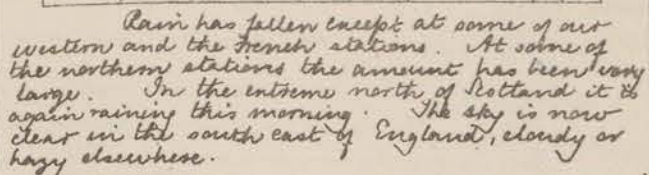 Rain has fallen except at some of our
western and the French stations. At some of
the northern stations the amount has been very
large. In the extreme north of Scotland it is
again raining this morning. The sky is now
clear in the south east of England, cloudy or
hazy elsewhere.